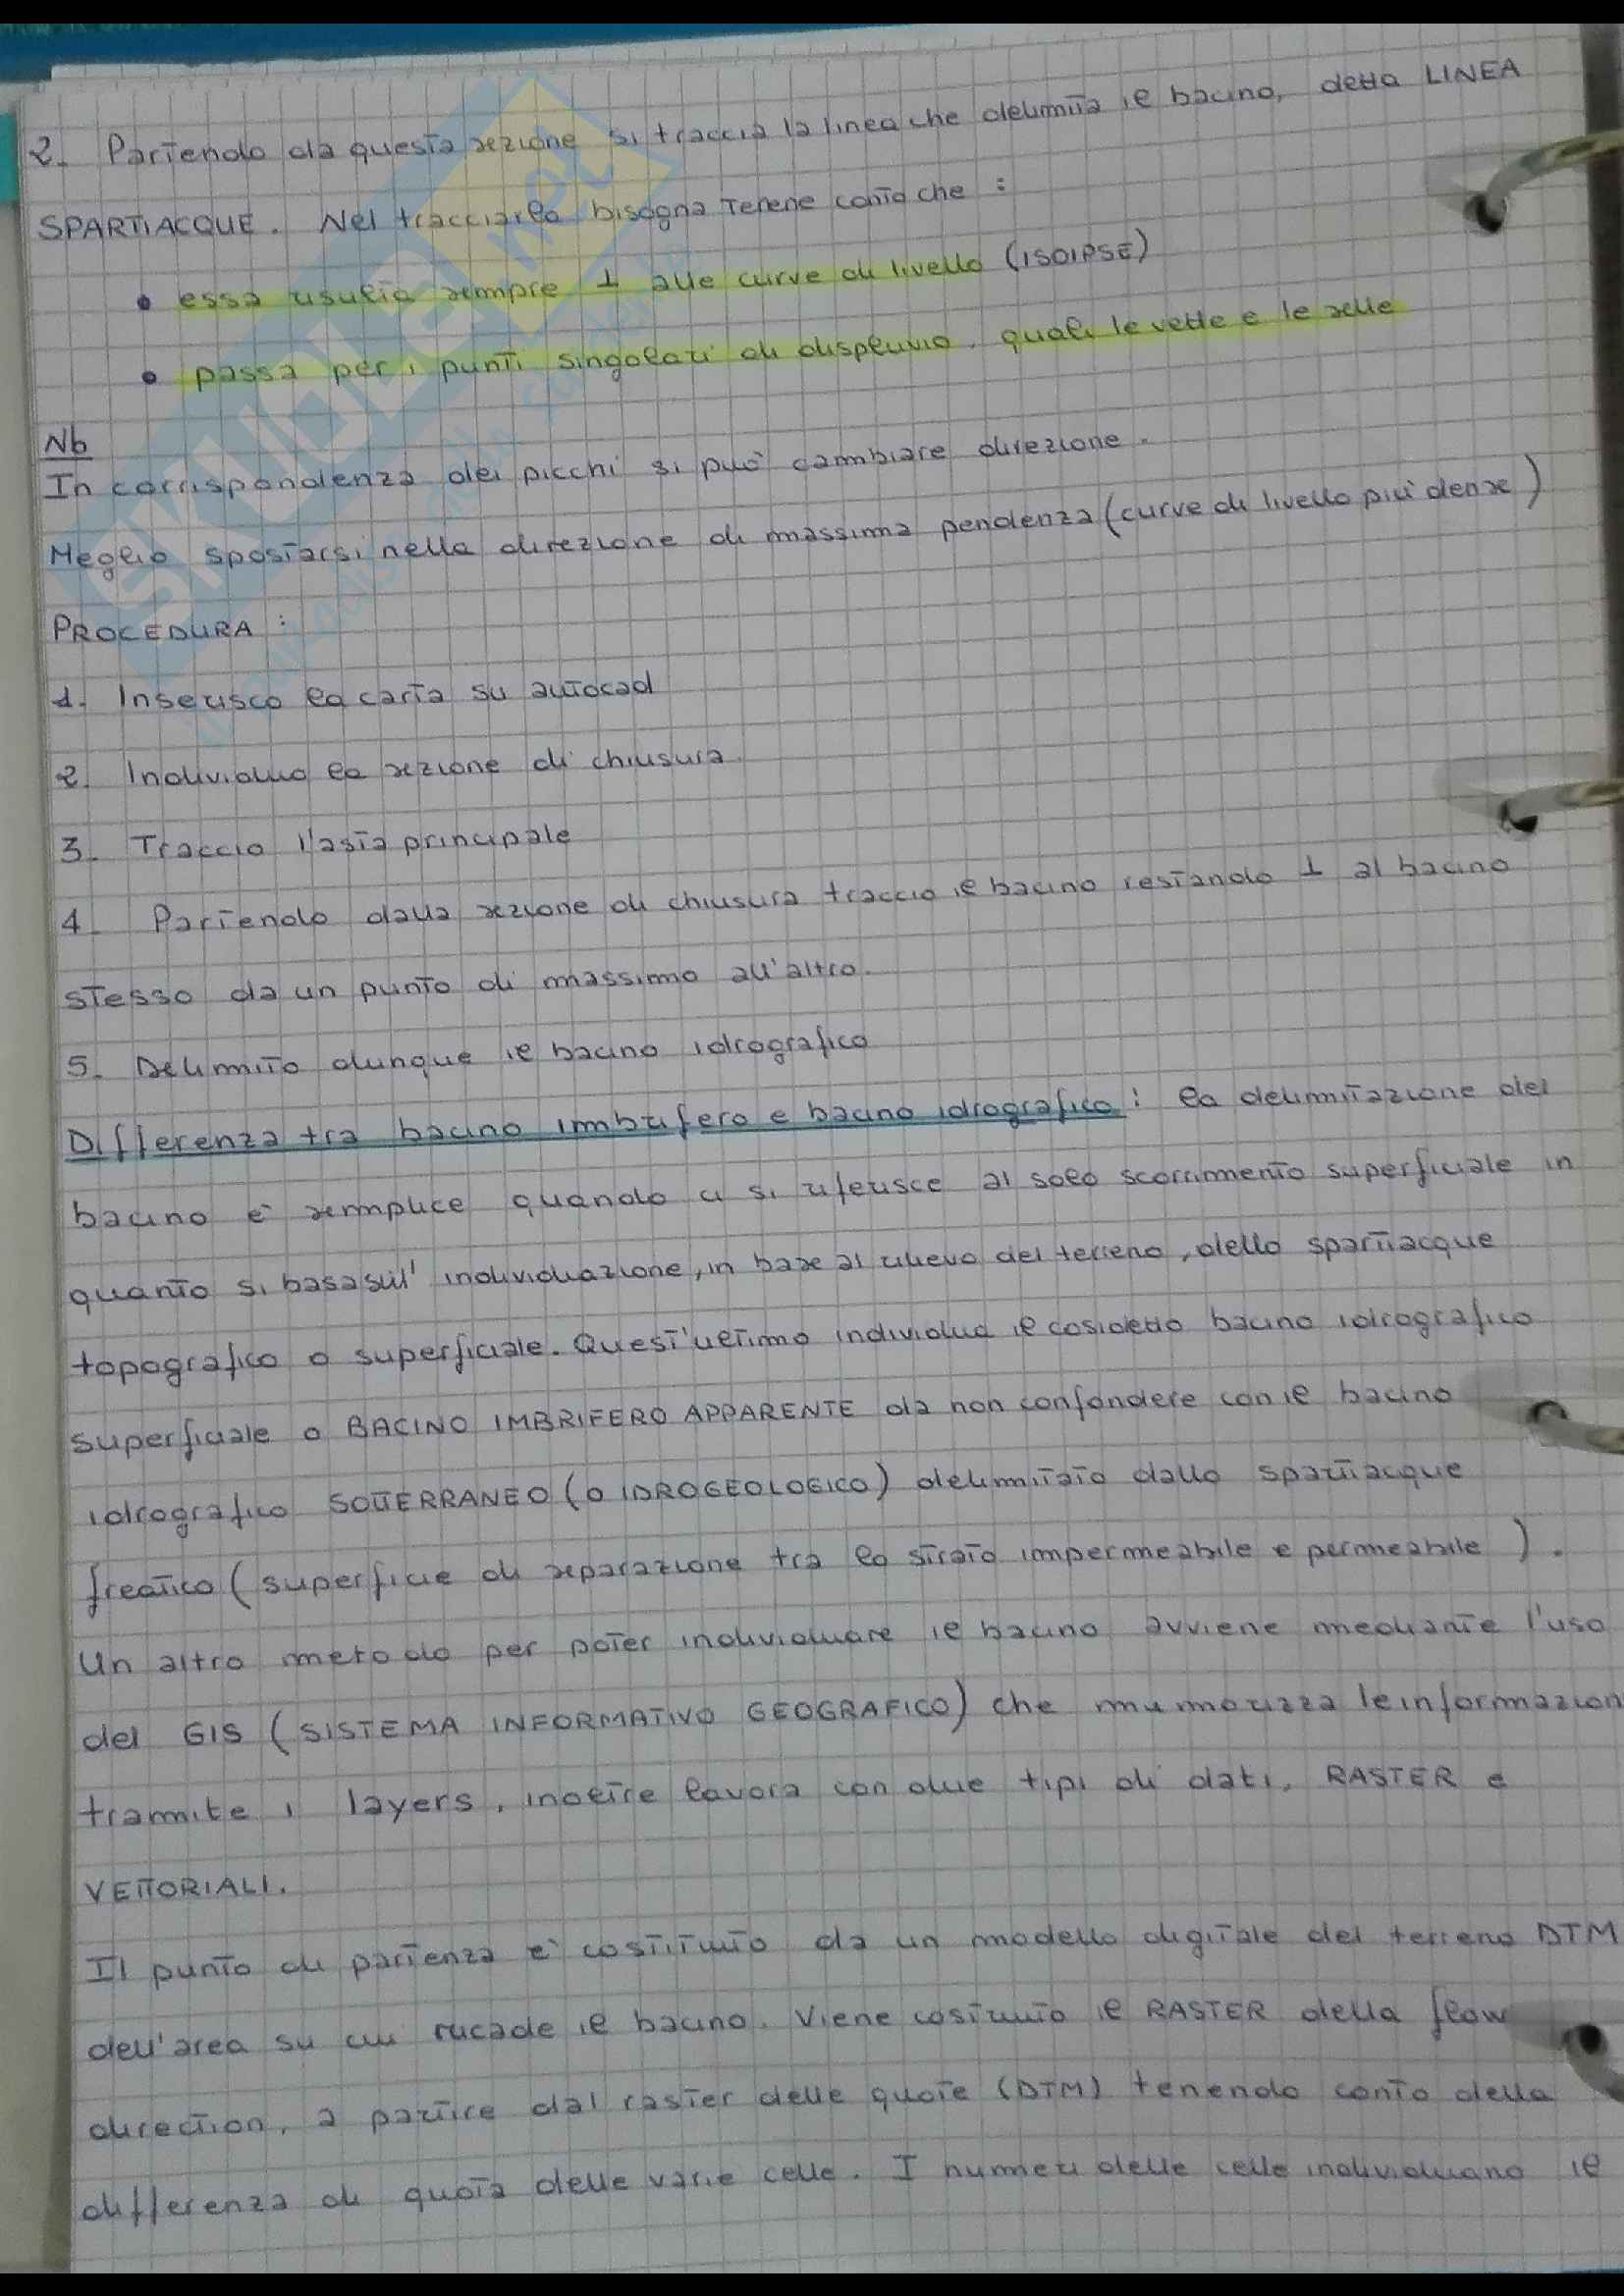 2. Partendo da questa sezione si traccia la linea che delimita il bacino, detta LINEA
SPARTIACQUE. Nel tracciarla bisogna tenere conto che :
• essa risulta sempre ⊥ alle curve di livello (ISOIPSE)
• passa per i punti singolari di displuvio, quali le vette e le selle
Nb
In corrispondenza dei picchi si può cambiare direzione.
Meglio spostarsi nella direzione di massima pendenza (curve di livello più dense)
PROCEDURA :
1. Inserisco la carta su autocad
2. Individuo la sezione di chiusura.
3. Traccio l'asta principale
4. Partendo dalla sezione di chiusura traccio il bacino restando ⊥ al bacino
stesso da un punto di massimo all'altro.
5. Delimito dunque il bacino idrografico
Differenza tra bacino imbrifero e bacino idrografico : la delimitazione del
bacino è semplice quando ci si riferisce al solo scorrimento superficiale in
quanto si basa sull' individuazione, in base al rilievo del terreno, dello spartiacque
topografico o superficiale. Quest'ultimo individua il cosidetto bacino idrografico
superficiale o BACINO IMBRIFERO APPARENTE da non confondere con il bacino
idrografico SOTTERRANEO (O IDROGEOLOGICO) delimitato dallo spartiacque
freatico (superficie di separazione tra lo strato impermeabile e permeabile ).
Un altro metodo per poter individuare il bacino avviene mediante l'uso
del GIS (SISTEMA INFORMATIVO GEOGRAFICO) che memorizza le informazion
tramite i layers, inoltre lavora con due tipi di dati, RASTER e
VETTORIALI.
Il punto di partenza è costituito da un modello digitale del terreno DTM
dell'area su cui ricade il bacino. Viene costruito il RASTER della flow
direction, a partire dal raster delle quote (DTM) tenendo conto della
differenza di quota delle varie celle. I numeri delle celle individuano il
SKUOLA.net